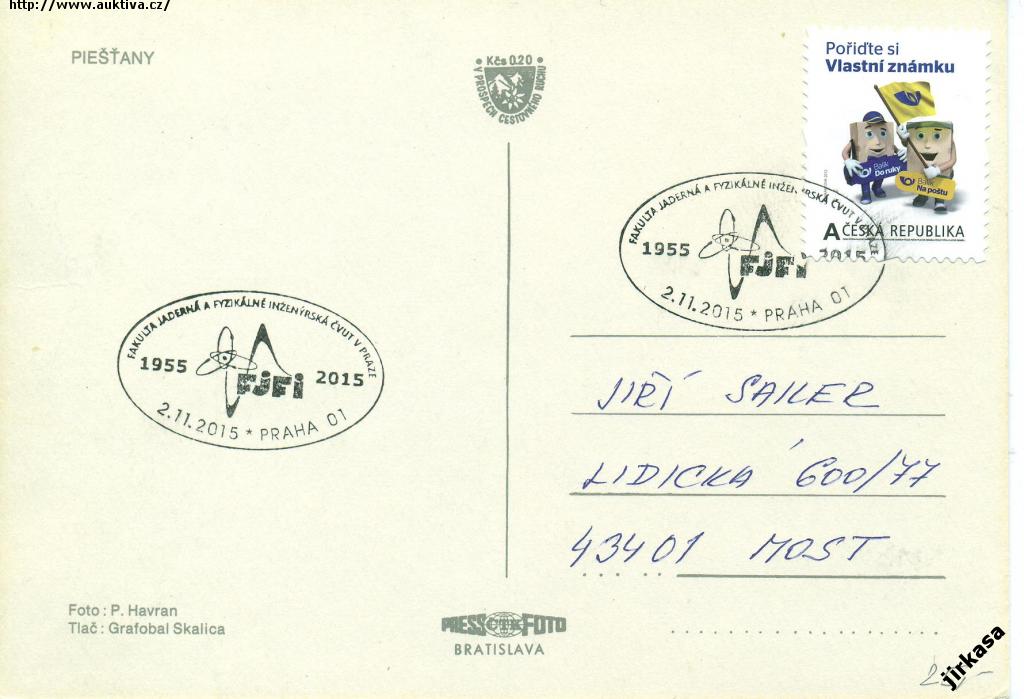 http://www.auktiva.cz/
PIEŠŤANY
Kčs 0.20
V PROSPECH CESTOVNÉHO RUCHU
Pořiďte si
Vlastní známku
Balík
Do ruky
Balík
Na poštu
A ČESKÁ REPUBLIKA
FAKULTA JADERNÁ A FYZIKÁLNĚ INŽENÝRSKÁ ČVUT V PRAZE
1955 FJFI 2015
2.11.2015 * PRAHA 01
FAKULTA JADERNÁ A FYZIKÁLNĚ INŽENÝRSKÁ ČVUT V PRAZE
1955 FJFI 2015
2.11.2015 * PRAHA 01
JIŘÍ SAILER
LIDICKÁ 600/77
43401 MOST
Foto : P. Havran
Tlač : Grafobal Skalica
PRESSČTKFOTO
BRATISLAVA
jirkasa